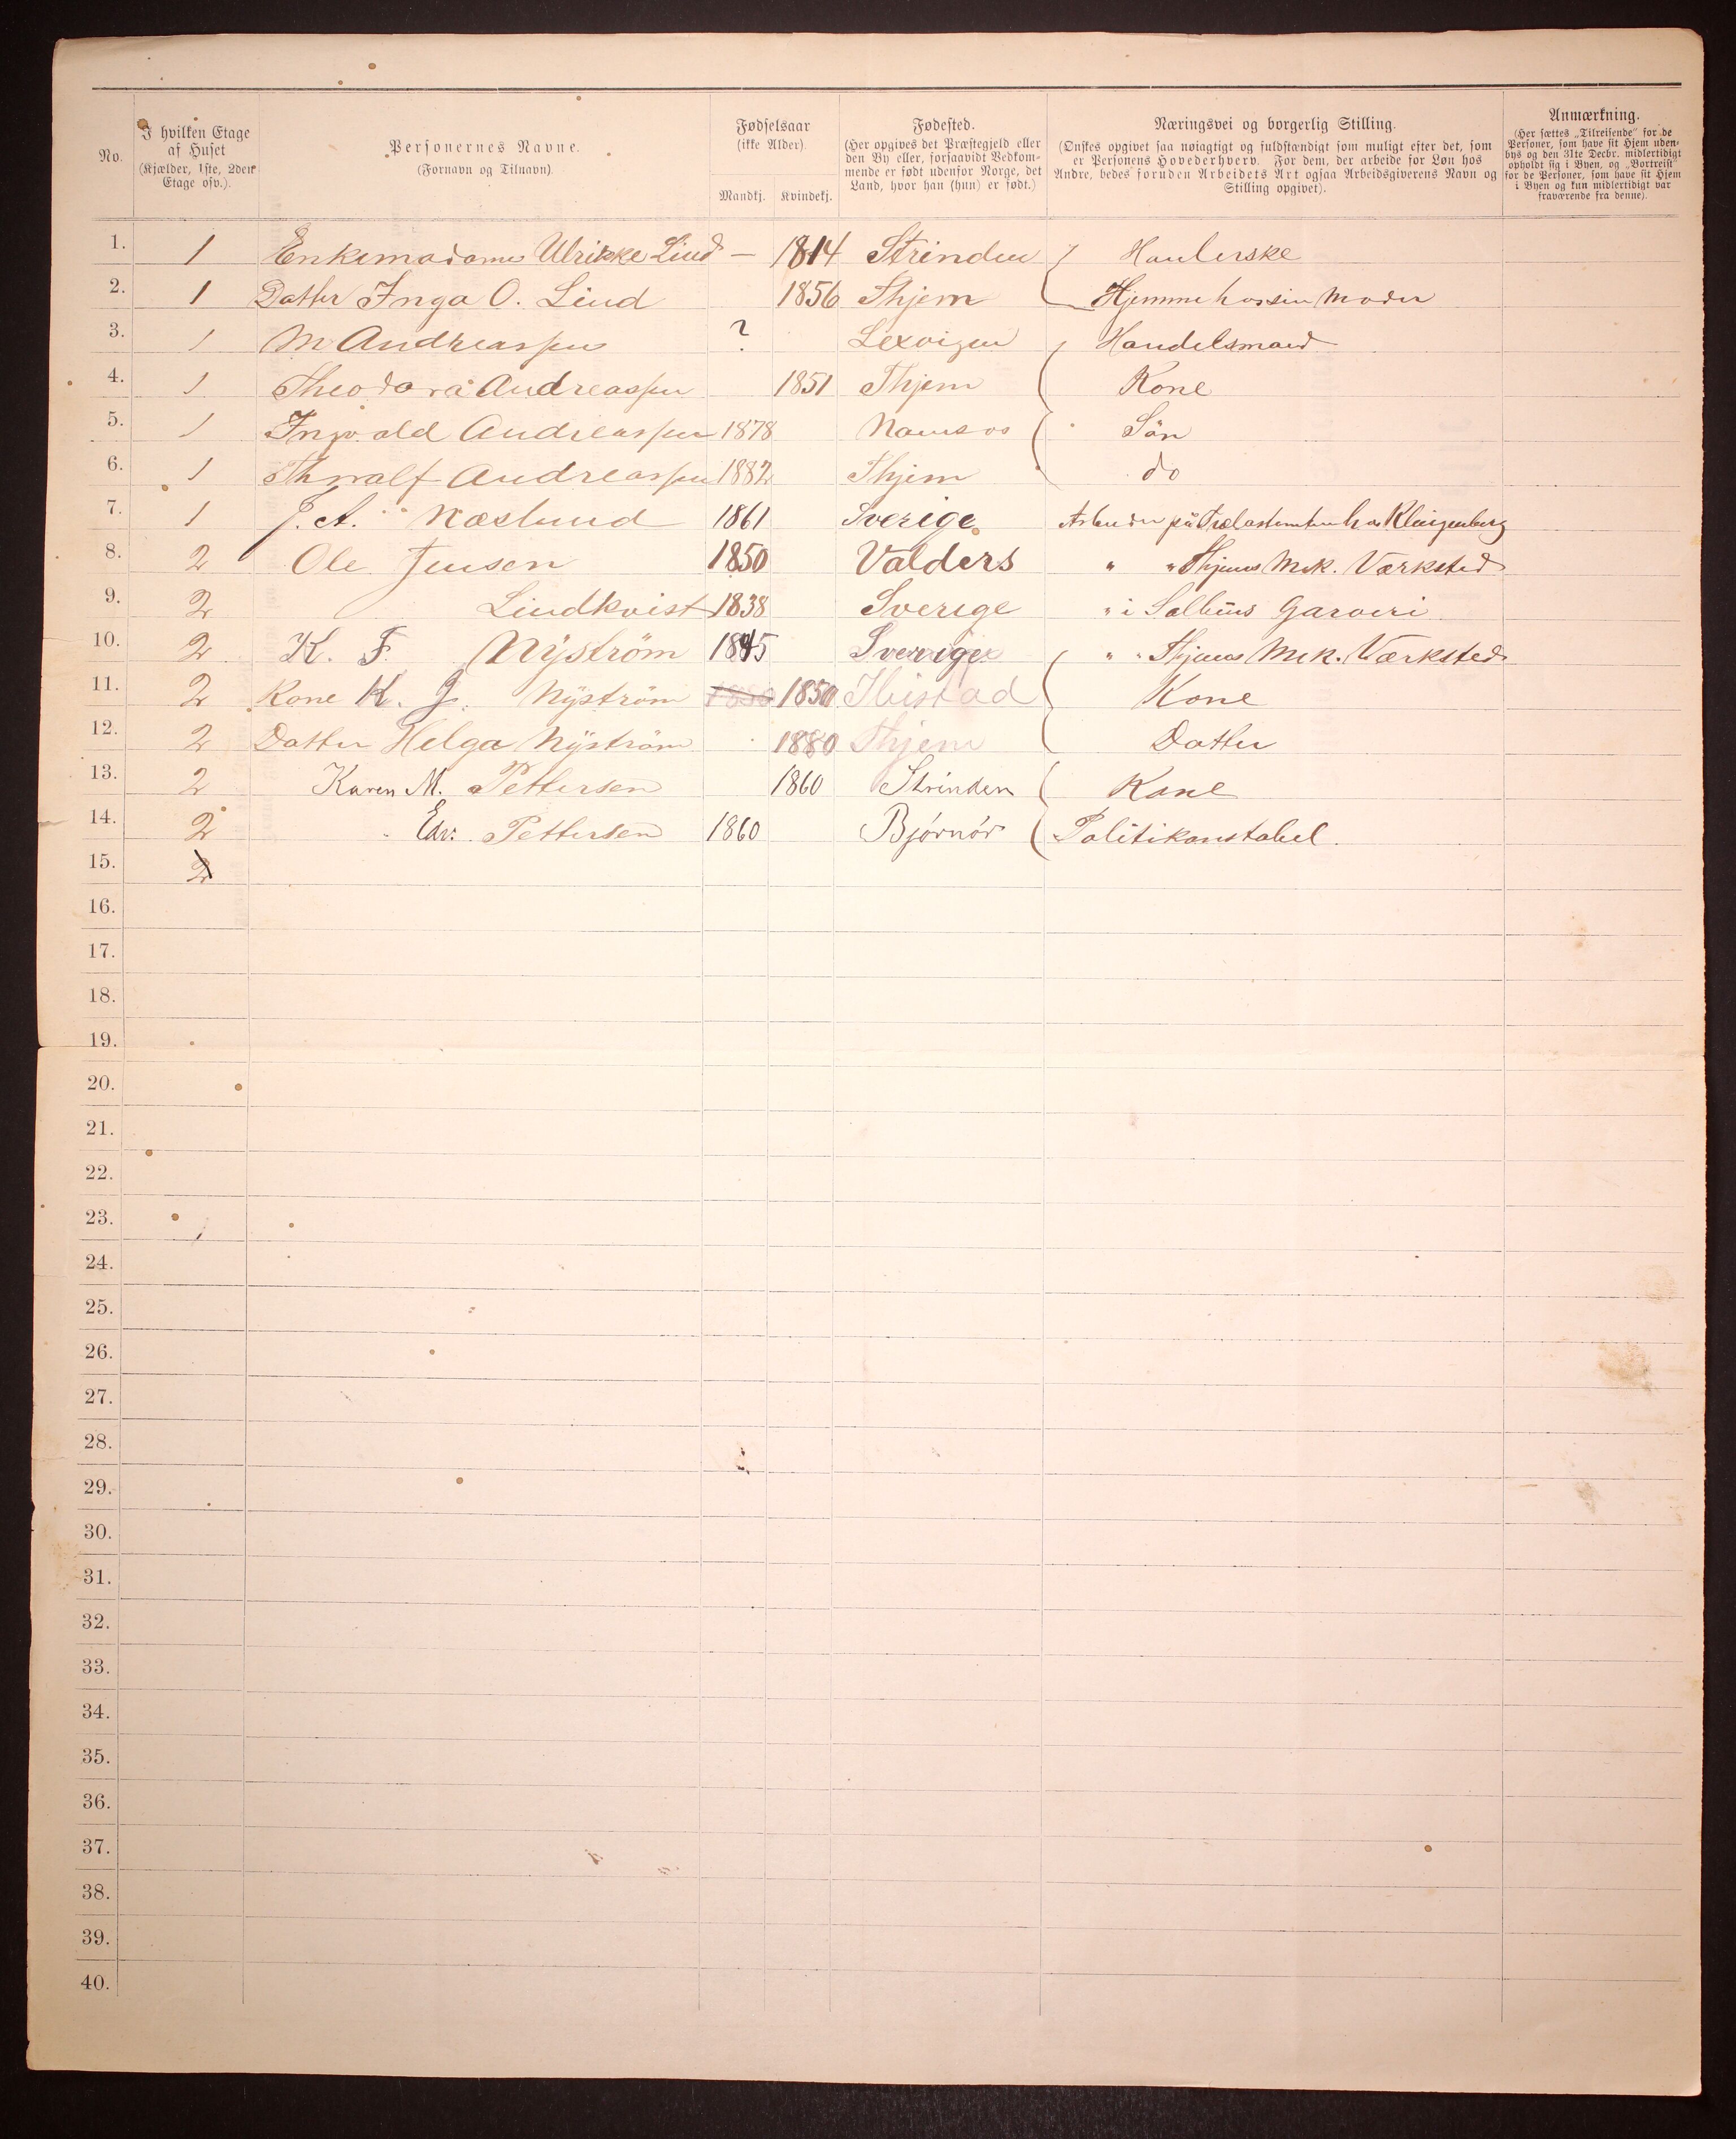 No.
I hvilken Etage af Huset (Kjælder, 1ste, 2den Etage osv.).
Personernes Navne. (Fornavn og Tilnavn).
Fødselsaar (ikke Alder).
Mandkj. Kvindekj.
Fødested. (Her opgives det Præstegjeld eller den By eller, forsaavidt Vedkommende er født udenfor Norge, det Land, hvor han (hun) er født.)
Næringsvei og borgerlig Stilling.
(Ønskes opgivet saa nøiagtigt og fuldstændigt som muligt efter det, som er Personens Hovederhverv. For dem, der arbeide for Løn hos Andre, bedes foruden Arbeidets Art ogsaa Arbeidsgiverens Navn og Stilling opgivet).
Anmærkning.
(Her sættes „Tilreisende" for de Personer, som have sit Hjem udenbys og den 31te Decbr. midlertidigt opholdt sig i Byen, og „Bortreist" for de Personer, som have sit Hjem i Byen og kun midlertidigt var fraværende fra denne).
1. 1 Enkemadame Ulrikke Lind — 1814 Strinden
2. 1 Datter Inga O. Lind 1856 Thjem Hjemme hos sin Moder
3. 1 M Andreassen ? Lexvigen Handelsmand
4. 1 Theodora Andreassen 1851 Thjem Kone
5. 1 Ingvald Andreassen 1878 Namsos Sön
6. 1 Thoralf Andreassen 1882 Thjem do
7. 1 J. A. Næslund 1861 Sverige Arbeider på Trælasttomten hos Klingenberg
8. 2 Ole Jensen 1850 Valders " " Thjems Mek. Værksted
9. 2 Lindkvist 1838 Sverige " i Garveri
10. 2 K. F. Nyström 1845 Sverige " " Thjems Mek. Værksted
11. 2 Kone K. J. Nyström 1850 1850 Ibistad Kone
12. 2 Datter Helga Nyström 1880 Thjem Datter
13. 2 Karen M. Pettersen 1860 Strinden Kone
14. 2 Edv. Pettersen 1860 Bjørnør Politikonstabel.
15. 2
16.
17.
18.
19.
20.
21.
22.
23.
24.
25.
26.
27.
28.
29.
30.
31.
32.
33.
34.
35.
36.
37.
38.
39.
40.